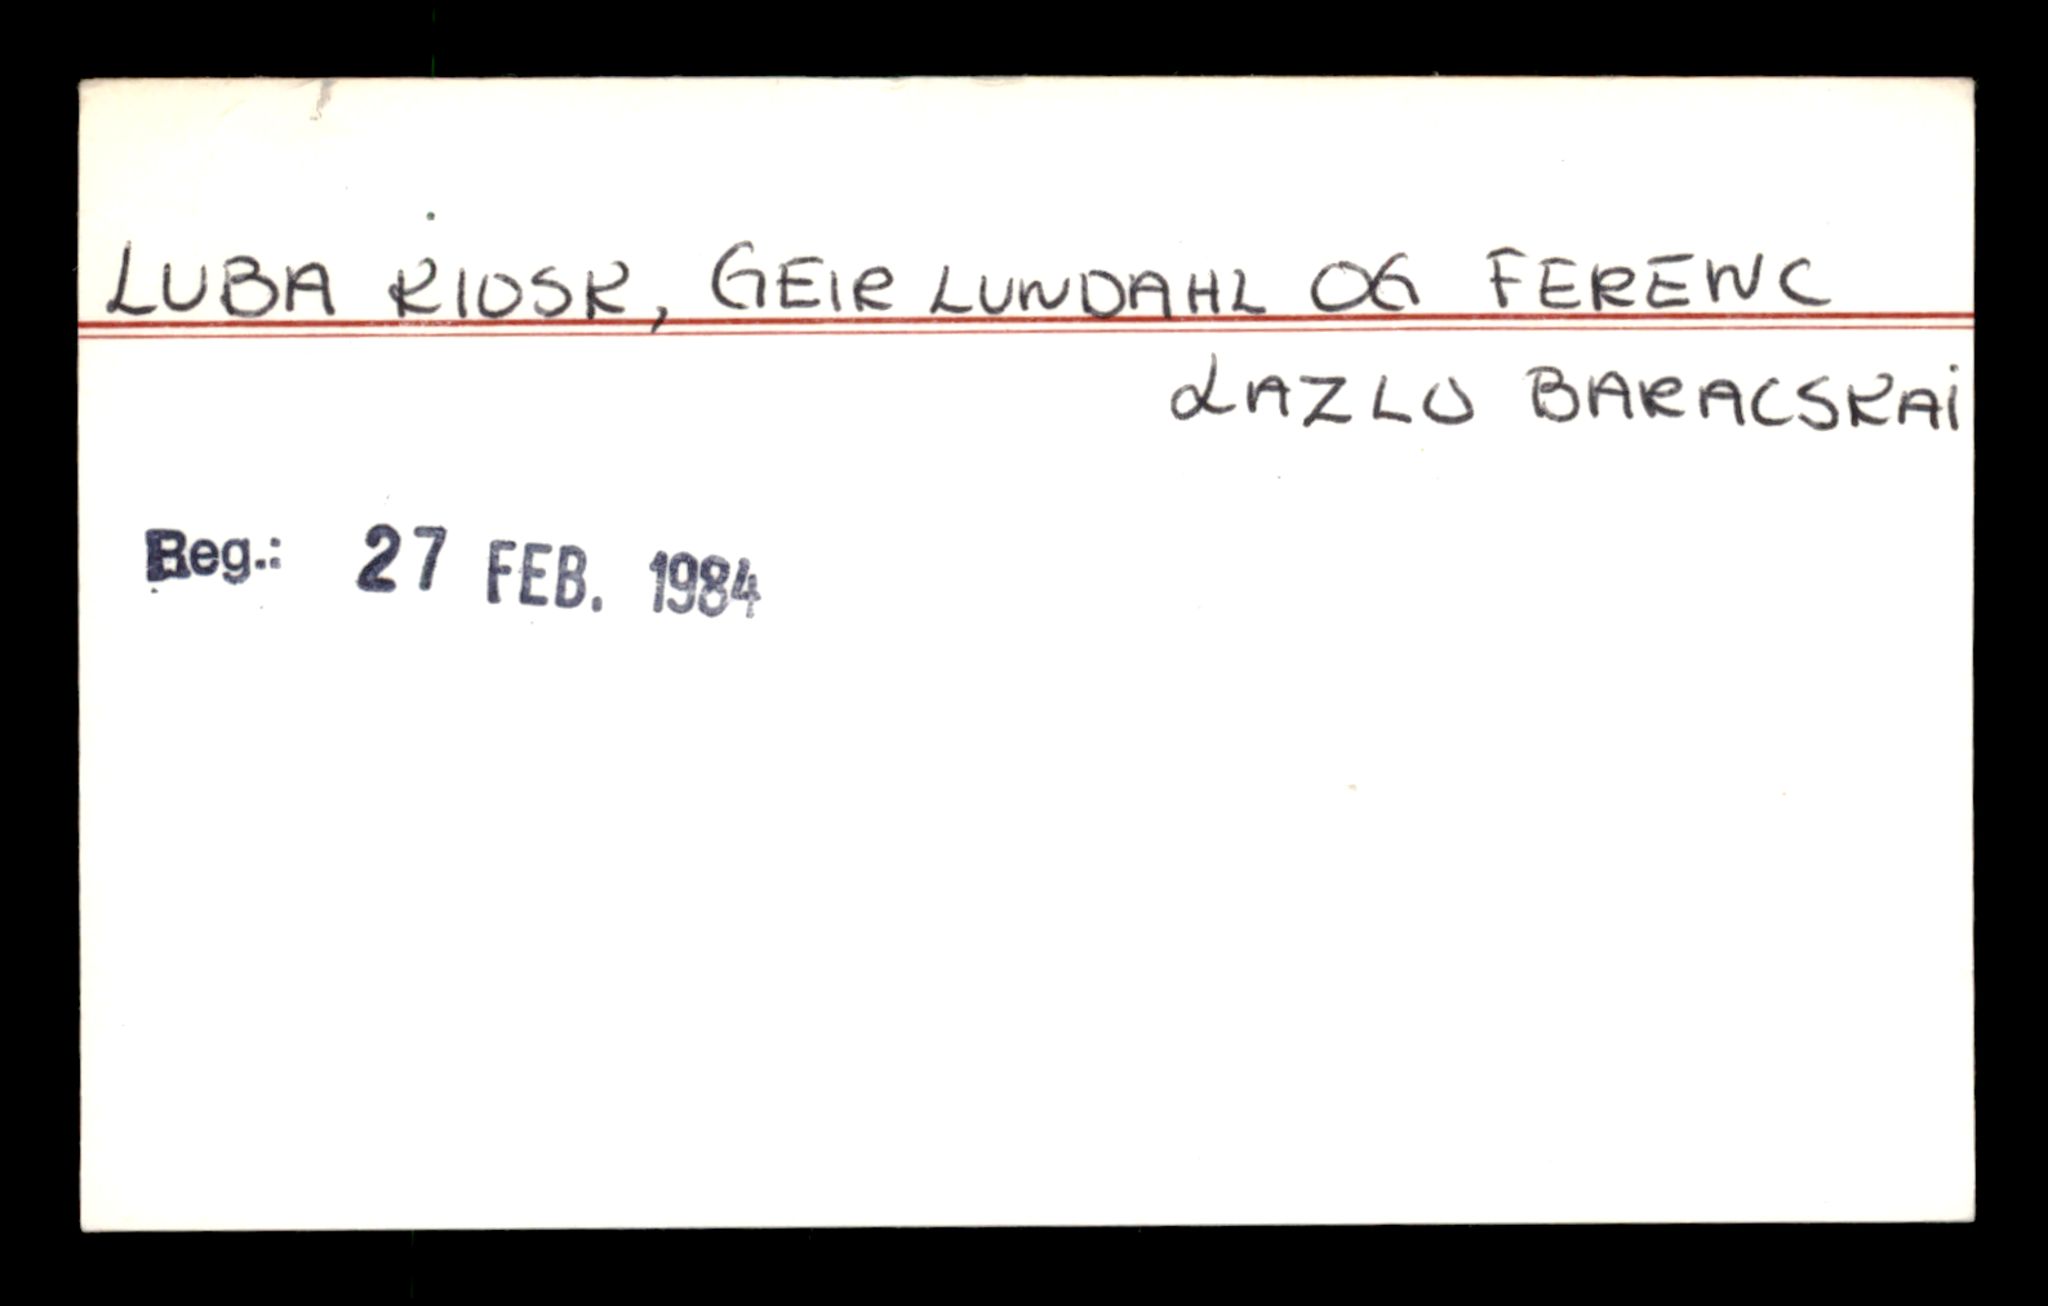 LUBA KIOSK, GEIR LUNDAHL OG FERENC
LAZLO BARACSKAI
Reg.: 27 FEB. 1984